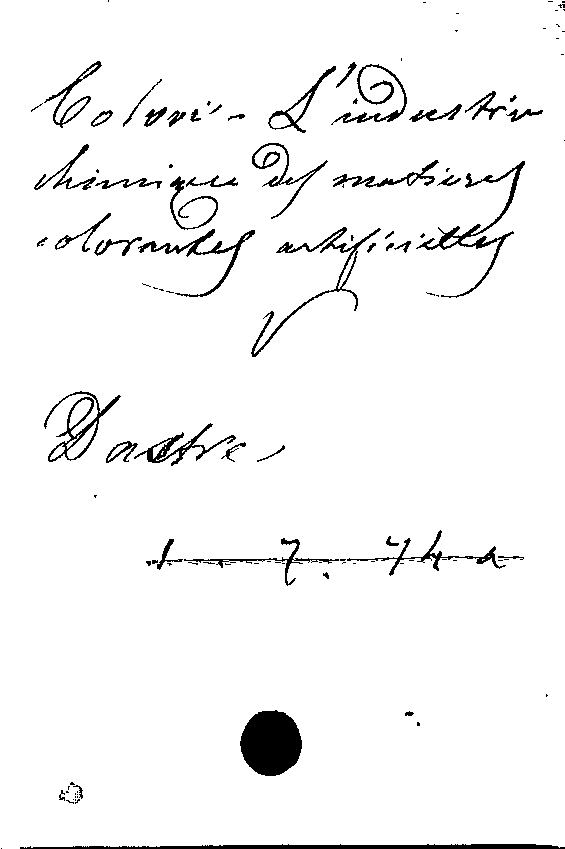 Colori - L'industrie
chimique des matieres
colorantes artificielles
Dastre
1. 7. 74 a